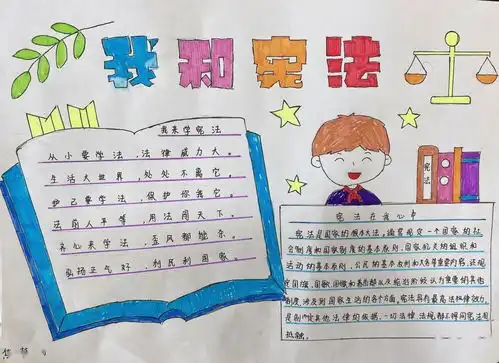 我和宪法
我来学宪法
从小要学法，法律威力大。
生活大世界，处处不离它。
护己要学法，保护你我它。
法前人平等，用法闯天下。
齐心来学法，歪风都被杀。
弘扬正气好，利民利国家。
宪法
宪法在我心中
宪法是国家的根本大法，通常规定一个国家的社
会制度和国家制度的基本原则，国家机关的组织和
活动的基本原则，公民的基本权利和义务等重要内容，还规
定国旗、国歌、国徽和首都以及统治阶级认为重要的其他
制度，涉及到国家生活的各个方面，宪法具有最高法律效力，
是制定其他法律的依据，一切法律、法规都不得同宪法相
抵触。